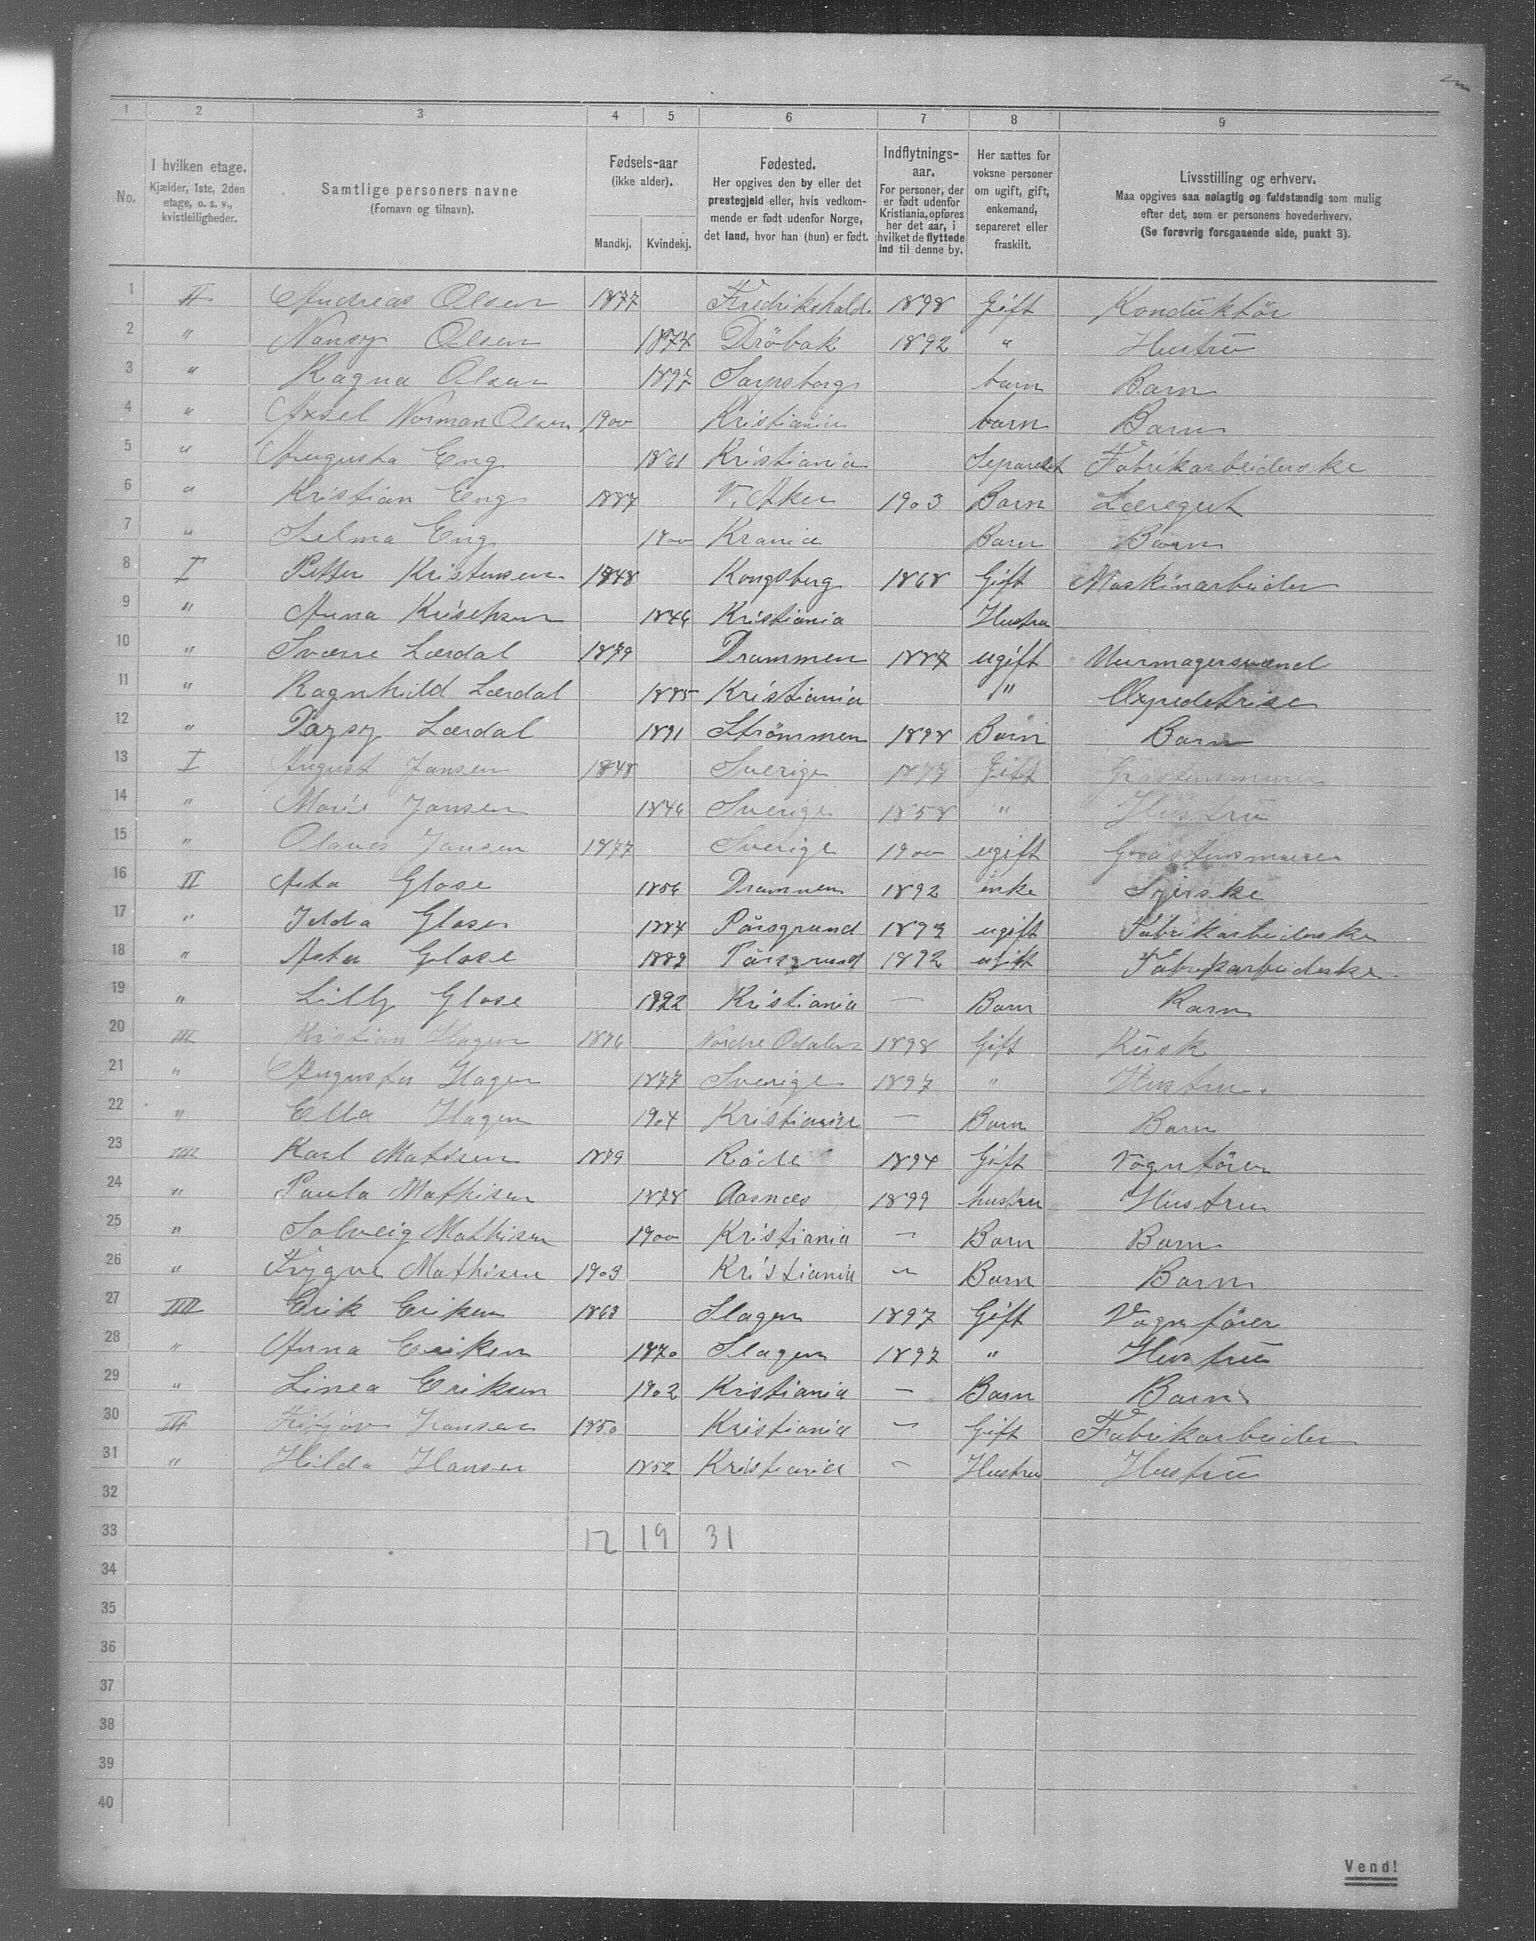 1 2 3 4 5 6 7 8 9
No. | I hvilken etage. Kjælder, 1ste, 2den etage, o. s. v., kvistleiligheder. | Samtlige personers navne (Fornavn og tilnavn). | Fødsels-aar (ikke alder). Mandkj. Kvindekj. | Fødested. Her opgives den by eller det prestegjeld eller, hvis vedkommende er født udenfor Norge, det land, hvor han (hun) er født. | Indflytnings-aar. For personer, der er født udenfor Kristiania, opføres her det aar, i hvilket de flyttede ind til denne by. | Her sættes for voksne personer om ugift, gift, enkemand, separeret eller fraskilt. | Livsstilling og erhverv. Maa opgives saa nøiagtig og fuldstændig som mulig efter det, som er personens hovederhverv. (Se forøvrig foregaaende side, punkt 3).
1 II Andreas Olsen 1877 Fredrikshald 1898 Gift Konduktör
2 " Nansy Olsen 1874 Dröbak 1892 " Hustru
3 " Ragna Olsen 1897 Sarpsborg barn Barn
4 " Axsel Norman Olsen 1900 Kristiania barn Barn
5 " Augusta Eng 1861 Kristiania Separeret Fabrikarbeiderske
6 " Kristian Eng 1887 V. Aker 1903 Barn Læregut
7 " Selma Eng 1900 Krania Barn Barn
8 I Petter Kristensen 1848 Kongsberg 1868 Gift Maskinarbeider
9 " Anna 1846 Kristiania Hustru
10 " Sverre Lærdal 1879 Drammen 1887 ugift Uurmagersvænd
11 " Ragnhild Lærdal 1885 Kristiania " Expeditrise
12 " Paysy Lærdal 1891 Strömmen 1898 Barn Barn
13 I August Jansen 1848 Sverige 1877 Gift
14 " Marie Jansen 1846 Sverige 1858 " Hustru
15 " Olaves Jansen 1877 Sverige 1900 ugift
16 II Asta Glose 1856 Drammen 1892 enke Syerske
17 " Glose 1884 Pörsgrund 1892 ugift Fabrikarbeiderske
18 " Asta Glose 1889 Pörsgrund 1892 ugift Fabrikarbeiderske
19 " Lilly Glose 1892 Kristiania — Barn Barn
20 III Kristian Hagen 1876 Nordre Odalen 1898 Gift Kusk
21 " Augusta Hagen 1877 Sverige 1897 " Hustru.
22 " Ella Hagen 1904 Kristiania — Barn Barn
23 III Karl Matisen 1879 Råde 1894 Gift Vognförer
24 " Paula Mathisen 1878 Aasnes 1899 hustru Hustru
25 " Solveig Mathisen 1900 Kristiania — Barn Barn
26 " Trygve Mathisen 1903 Kristiania — Barn Barn
27 IIII Erik Eriksen 1863 Slagen 1897 Gift Vognförer
28 " Anna Eriksen 1870 Slagen 1897 " Hustru
29 " Linea Eriksen 1902 Kristiania — Barn Barn
30 III Hansen 1850 Kristiania — Gift Fabrikarbeider
31 " Hilda Hansen 1852 Kristiania — Hustru Hustru
32
33 12 19 31
34
35
36
37
38
39
40
Vend!